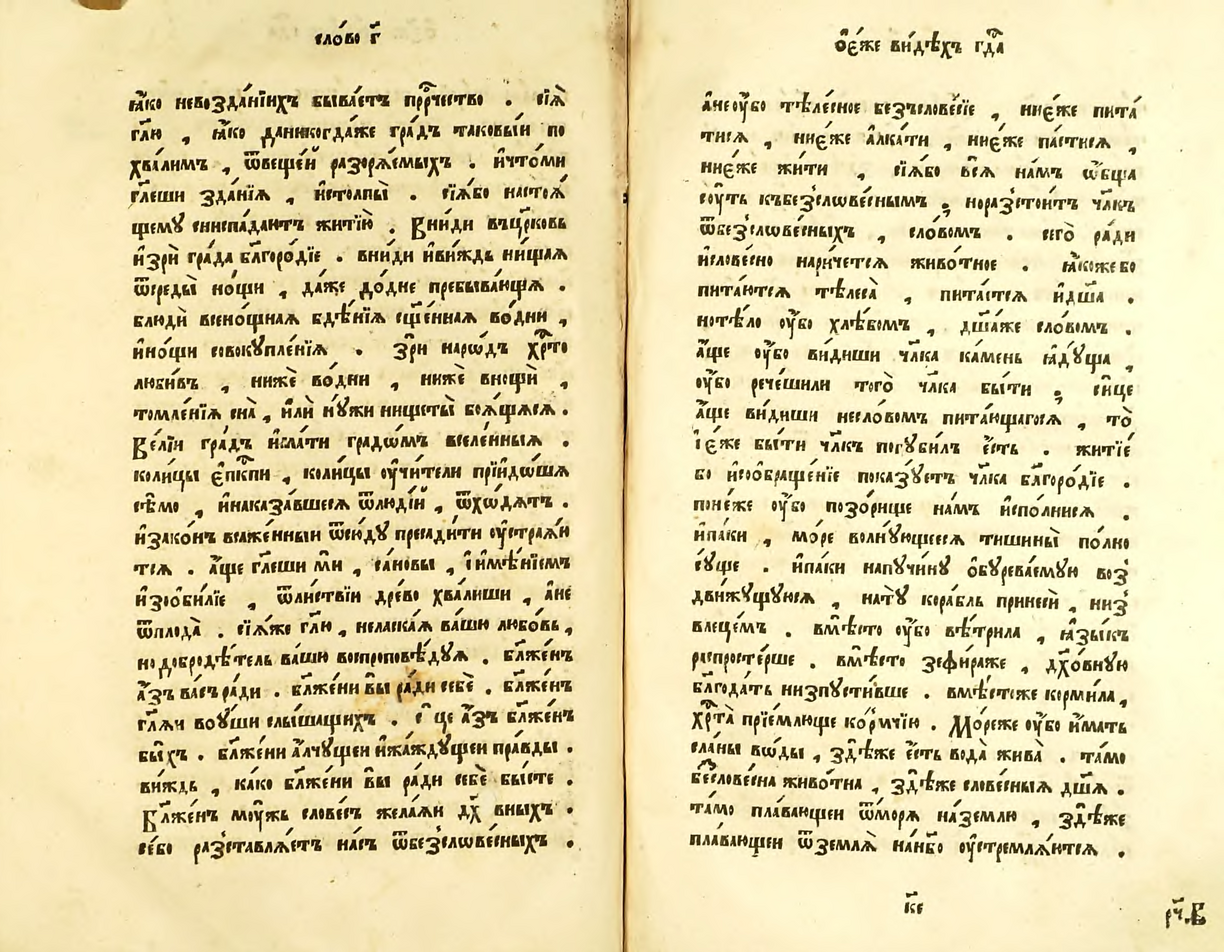 сло́во г҃
ꙗ҆́ко невозда́нїихъ быва́етъ прⷪ҇рчество . сїѧ̀
гл҃ю , ꙗ҆́ко даникогда́же гра́дъ таковы́и по
хва́лимъ , ѿвеще́й разорѧ́емыхъ . и҆что́ми
гл҃еши зда́нїѧ , и҆столпы̀ . сїѧ́бо настоѧ́
щемꙋ сниспа́даютъ житїю̀ . Вни́ди въцр҃ковь
и҆зрѝ гра́да бл҃горо́дїе . вни́ди и҆ви́ждь ни́щаѧ
ѿсреды̀ но́щи , да́же до́дне пребыва́ющѧ .
блюдѝ всено́щнаѧ бдѣ́нїѧ сщ҃е́ннаѧ во́дни ,
и҆но́щи совокꙋпле́нїѧ . зрѝ наро́дъ хрⷭ҇то
любивъ , нижѐ во́дни , нижѐ внощѝ ,
томле́нїѧ сна̀ , и҆лѝ нꙋ́жи нищеты̀ боѧ́щаѧсѧ .
Ве́лїи гра́дъ и҆ма́ти градѡ́мъ вселе́нныѧ .
коли́цы є҆пⷭ҇кпи , коли́цы ᲂу҆чи́тели прїидо́шѧ
сѣ́мо , и҆наказа́вшесѧ ѿлюді́й , ѿхо́дѧтъ .
и҆зако́нъ всаже́нныи ѿсю́дꙋ преса́дити ᲂу҆стра́ѧю
тсѧ . а҆́ще гл҃еши мѝ , са́новы , і҆и҆мѣ́нїемъ
и҆з̾оби́лїе , ѿли́ствїи дре́во хва́лиши , а҆́не
ѿплода̀ . сїѧ́же гл҃ю , неласка́ѧ ва́шю любо́вь ,
но доброд́ѣтель ва́шю воспроповѣ́дꙋѧ . бл҃же́нъ
а҆́зъ ва́съ ра́ди . бл҃же́ни вы̀ ра́ди себѐ . бл҃же́нъ
гл҃ѧи воꙋ́ши слы́шащихъ . с и҆́ це а҆́зъ бл҃же́нъ
бы́хъ . бл҃же́ни а҆́лчꙋщеи и҆жа́ждꙋщеи пра́вды .
ви́ждь , ка́ко бл҃же́ни вы̀ ра́ди себѐ бы́сте .
Бл҃же́нъ мꙋ́жь слове́съ жела́ѧи дх҃ вныхъ .
се́бо разставлѧ́етъ на́съ ѿбез̾слове́сныхъ .
ѻ҆́еже ви́дѣхъ гдⷭ҇а
а҆неᲂу҆́бо тѣле́сное без̾ъслове́сїе , ниє́же пита́
тисѧ , ниє́же а҆лка́ти , ниє́же па́стисѧ ,
ниє́же жи́ти , сїѧ́бо всѧ̀ на́мъ ѡ҆́бща
сꙋ́ть къбез̾слове́снымъ , нораз̾стои́тъ чл҃къ
ѿбез̾слове́сныхъ , сло́вомъ . сего̀ ра́ди
и҆слове́сно нарице́тсѧ живо́тное . ꙗ҆́коже бо
пита́ютсѧ тѣлеса̀ , пита́етсѧ и҆дш҃а̀ .
нотѣ́ло ᲂу҆́бо хлѣ́бомъ , дш҃а́же сло́вомъ .
а҆́ще ᲂу҆́бо ви́диши чл҃ка ка́мень ꙗ҆дꙋ́ща ,
ᲂу҆́бо рече́шили того̀ чл҃ка бы́ти , си́це
а҆́ще ви́диши несло́вомъ пита́ющагосѧ , то̀
і҆є́же бы́ти чл҃къ погꙋби́лъ є҆́сть . житїе́
бо и҆соо҆браще́нїе показꙋ́етъ чл҃ка бл҃горо́дїе .
поне́же ᲂу҆́бо позо́рище на́мъ и҆спо́лнисѧ .
и҆па́ки , мо́ре волнꙋ́ющеесѧ тишины̀ по́лно
сꙋ́ще . и҆па́ки напꙋчи́нꙋ ѻ҆бꙋрева́емꙋю воз̾
дви́жꙋщꙋюсѧ , на́тꙋ кора́бль принесѝ , низ̾
влеце́мъ . вмѣ́сто ᲂу҆́бо вѣ́трила , ꙗ҆зы́къ
распросте́рше . вмѣ́сто зефи́раже , дх҃о́внꙋю
бл҃года́ть низпꙋсти́вше . вмѣ́стоже корми́ла ,
хрⷭ҇та̀ прїе́млюще ко́рмчїю . Мо́реже ᲂу҆́бо и҆́мать
сла́ны во́ды , здѣ́же є҆́сть вода̀ жива̀ . та́мо
бесслове́сна живо́тна , здѣ́же слове́сныѧ дш҃а̀ .
та́мо пла́вающеи ѿмо́рѧ на́землю , здѣ́же
пла́вающеи ѿземлѧ̀ на́нбо ᲂу҆стремлѧ́ютсѧ .
к҃е